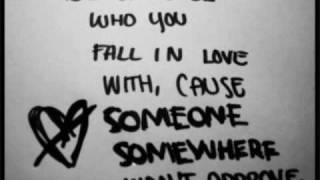 WHO YOU
FALL IN LOVE
WITH, CAUSE
SOMEONE
SOMEWHERE
WON'T APPROVE